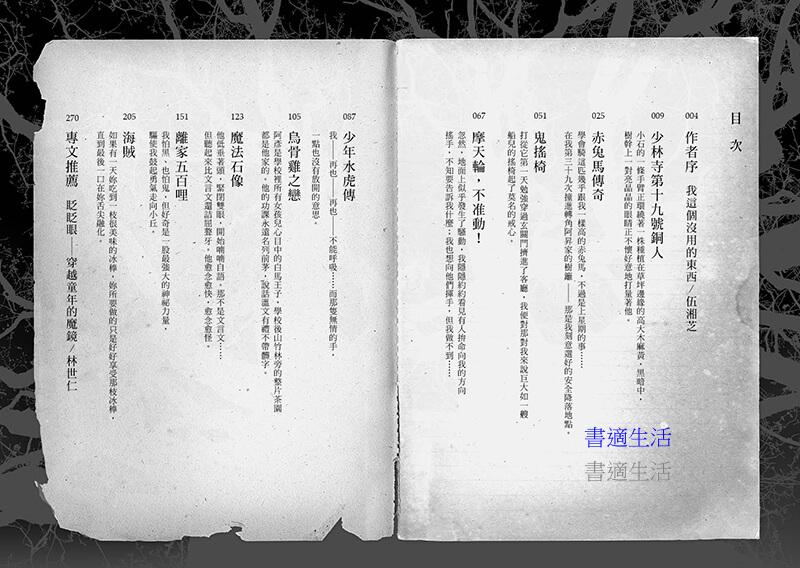 目次
004
作者序 我這個沒用的東西/伍湘芝
009
少林寺第十九號銅人
小石的一條手臂正環繞著一株種植在草坪邊緣的高大木麻黃,黑暗中,
樹幹上一對亮晶晶的眼睛正不懷好意地打量著他。
025
赤兔馬傳奇
學會騎這匹幾乎跟我一樣高的赤兔馬,不過是上星期的事……
在我第三十九次撞進轉角阿昇家的樹籬——那是我刻意選好的安全降落地點。
051
鬼搖椅
打從它第一天勉強穿過玄關門擠進了客廳,我便對那對我來說巨大如一艘
船兒的搖椅起了莫名的戒心。
067
摩天輪,不准動!
忽然,地面上似乎發生了騷動,我隱隱約約看見有人拚命向我的方向
搖手,不知要告訴我什麼;我也想向他們揮手,但我做不到……
087
少年水虎傳
我——再也——再也——不能呼吸……而那隻無情的手,
一點也沒有放開的意思。
105
烏骨雞之戀
阿彥是學校裡所有女孩兒心目中的白馬王子,學校後山竹林旁的整片茶園
都是他家的。他的功課永遠名列前茅,說話溫文有禮不帶髒字。
123
魔法石像
他低垂著頭,緊閉雙眼,開始喃喃自語。那不是文言文……
但聽起來比文言文還詰屈聱牙。他愈念愈快,愈念愈怪。
151
離家五百哩
我怕黑、也怕鬼,但好奇是一股最強大的神祕力量,
驅使我鼓起勇氣走向小丘。
205
海賊
如果有一天你吃到一枝很美味的冰棒,妳所要做的只是好好享受那枝冰棒,
直到最後一口在妳舌尖融化。
270
專文推薦 眨眨眼——穿越童年的魔鏡/林世仁
書適生活
書適生活